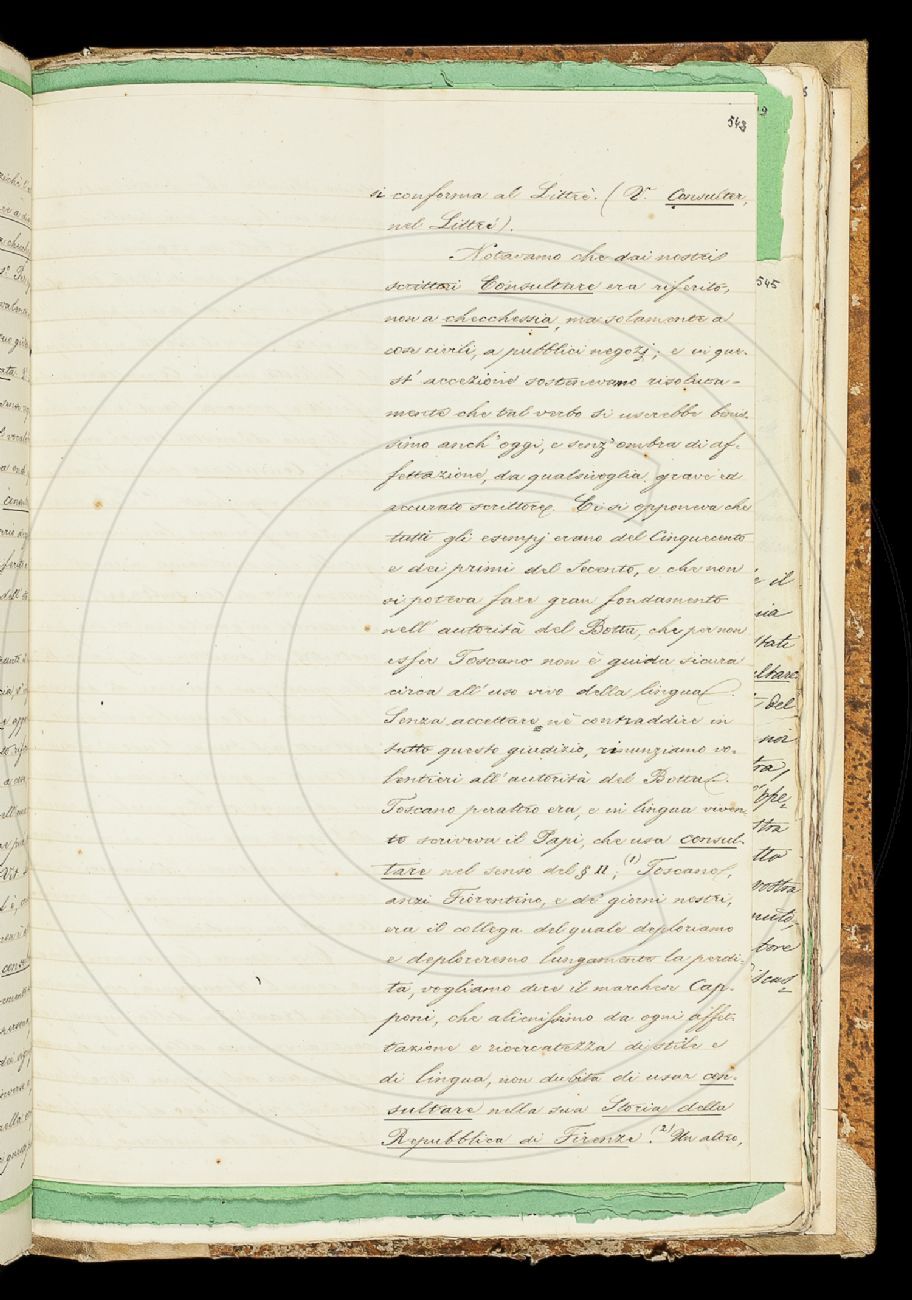 543
si conforma al Littré. (V. Consulter,
nel Littré).
Notavamo che dai nostri
scrittori Consultare era riferito,
non a checchessia, ma solamente a
cose civili, a pubblici negozj; e in que-
st' accezione sostenevamo risoluta-
mente che tal verbo si userebbe benis-
simo anch' oggi, e senz' ombra di af-
fettazione, da qualsivoglia grave ed
accurato scrittore. Ci si opponeva che
tutti gli esempj erano del Cinquecento
e dei primi del Secento, e che non
si poteva fare gran fondamento
nell' autorità del Botta, che per non
esser Toscano non è guida sicura
circa all' uso vivo della lingua.
Senza accettare nè contraddire in
tutto questo giudizio, rinunziamo vo-
lentieri all' autorità del Botta.
Toscano peraltro era, e in lingua viven-
te scriveva il Papi, che usa consul-
tare nel senso del § II; (1) Toscano,
anzi Fiorentino, e de' giorni nostri,
era il collega del quale deploriamo
e deploreremo lungamente la perdi-
ta, vogliamo dire il marchese Cap-
poni, che alienissimo da ogni affet-
tazione e ricercatezza di stile e
di lingua, non dubita di usar con-
sultare nella sua Storia della
Repubblica di Firenze. (2) Un altro,
545